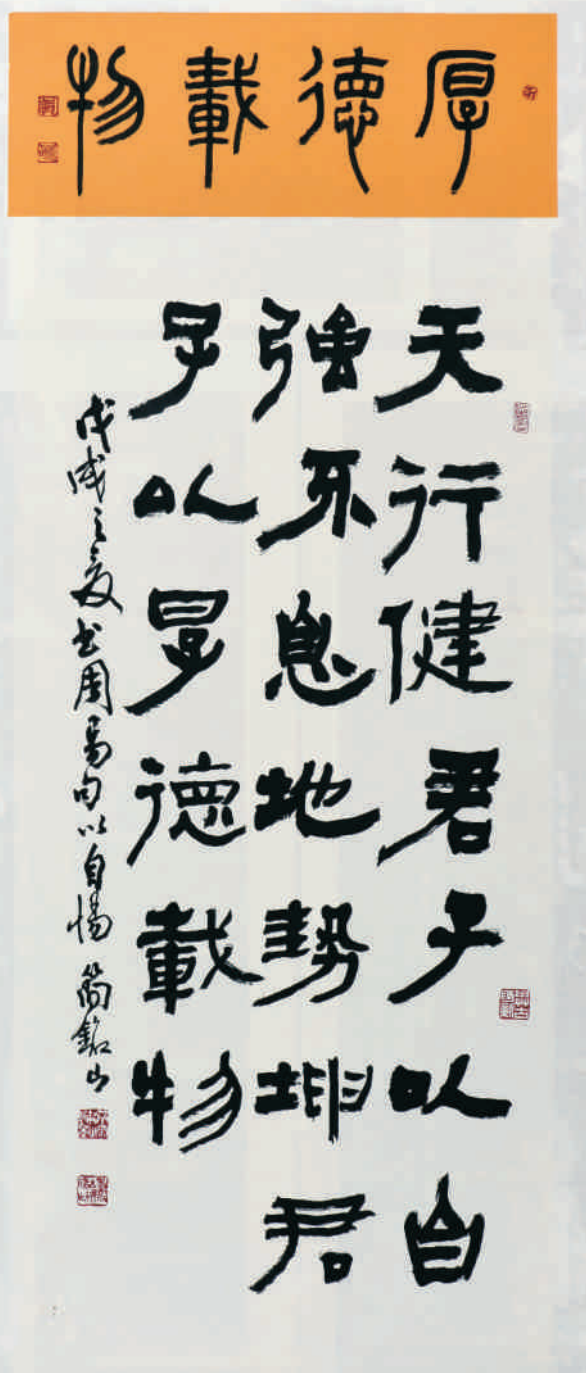 厚德載物
天行健君子以自
強不息地勢坤君
子以厚德載物
戊戌之夏書周易句以自惕 簡銘山